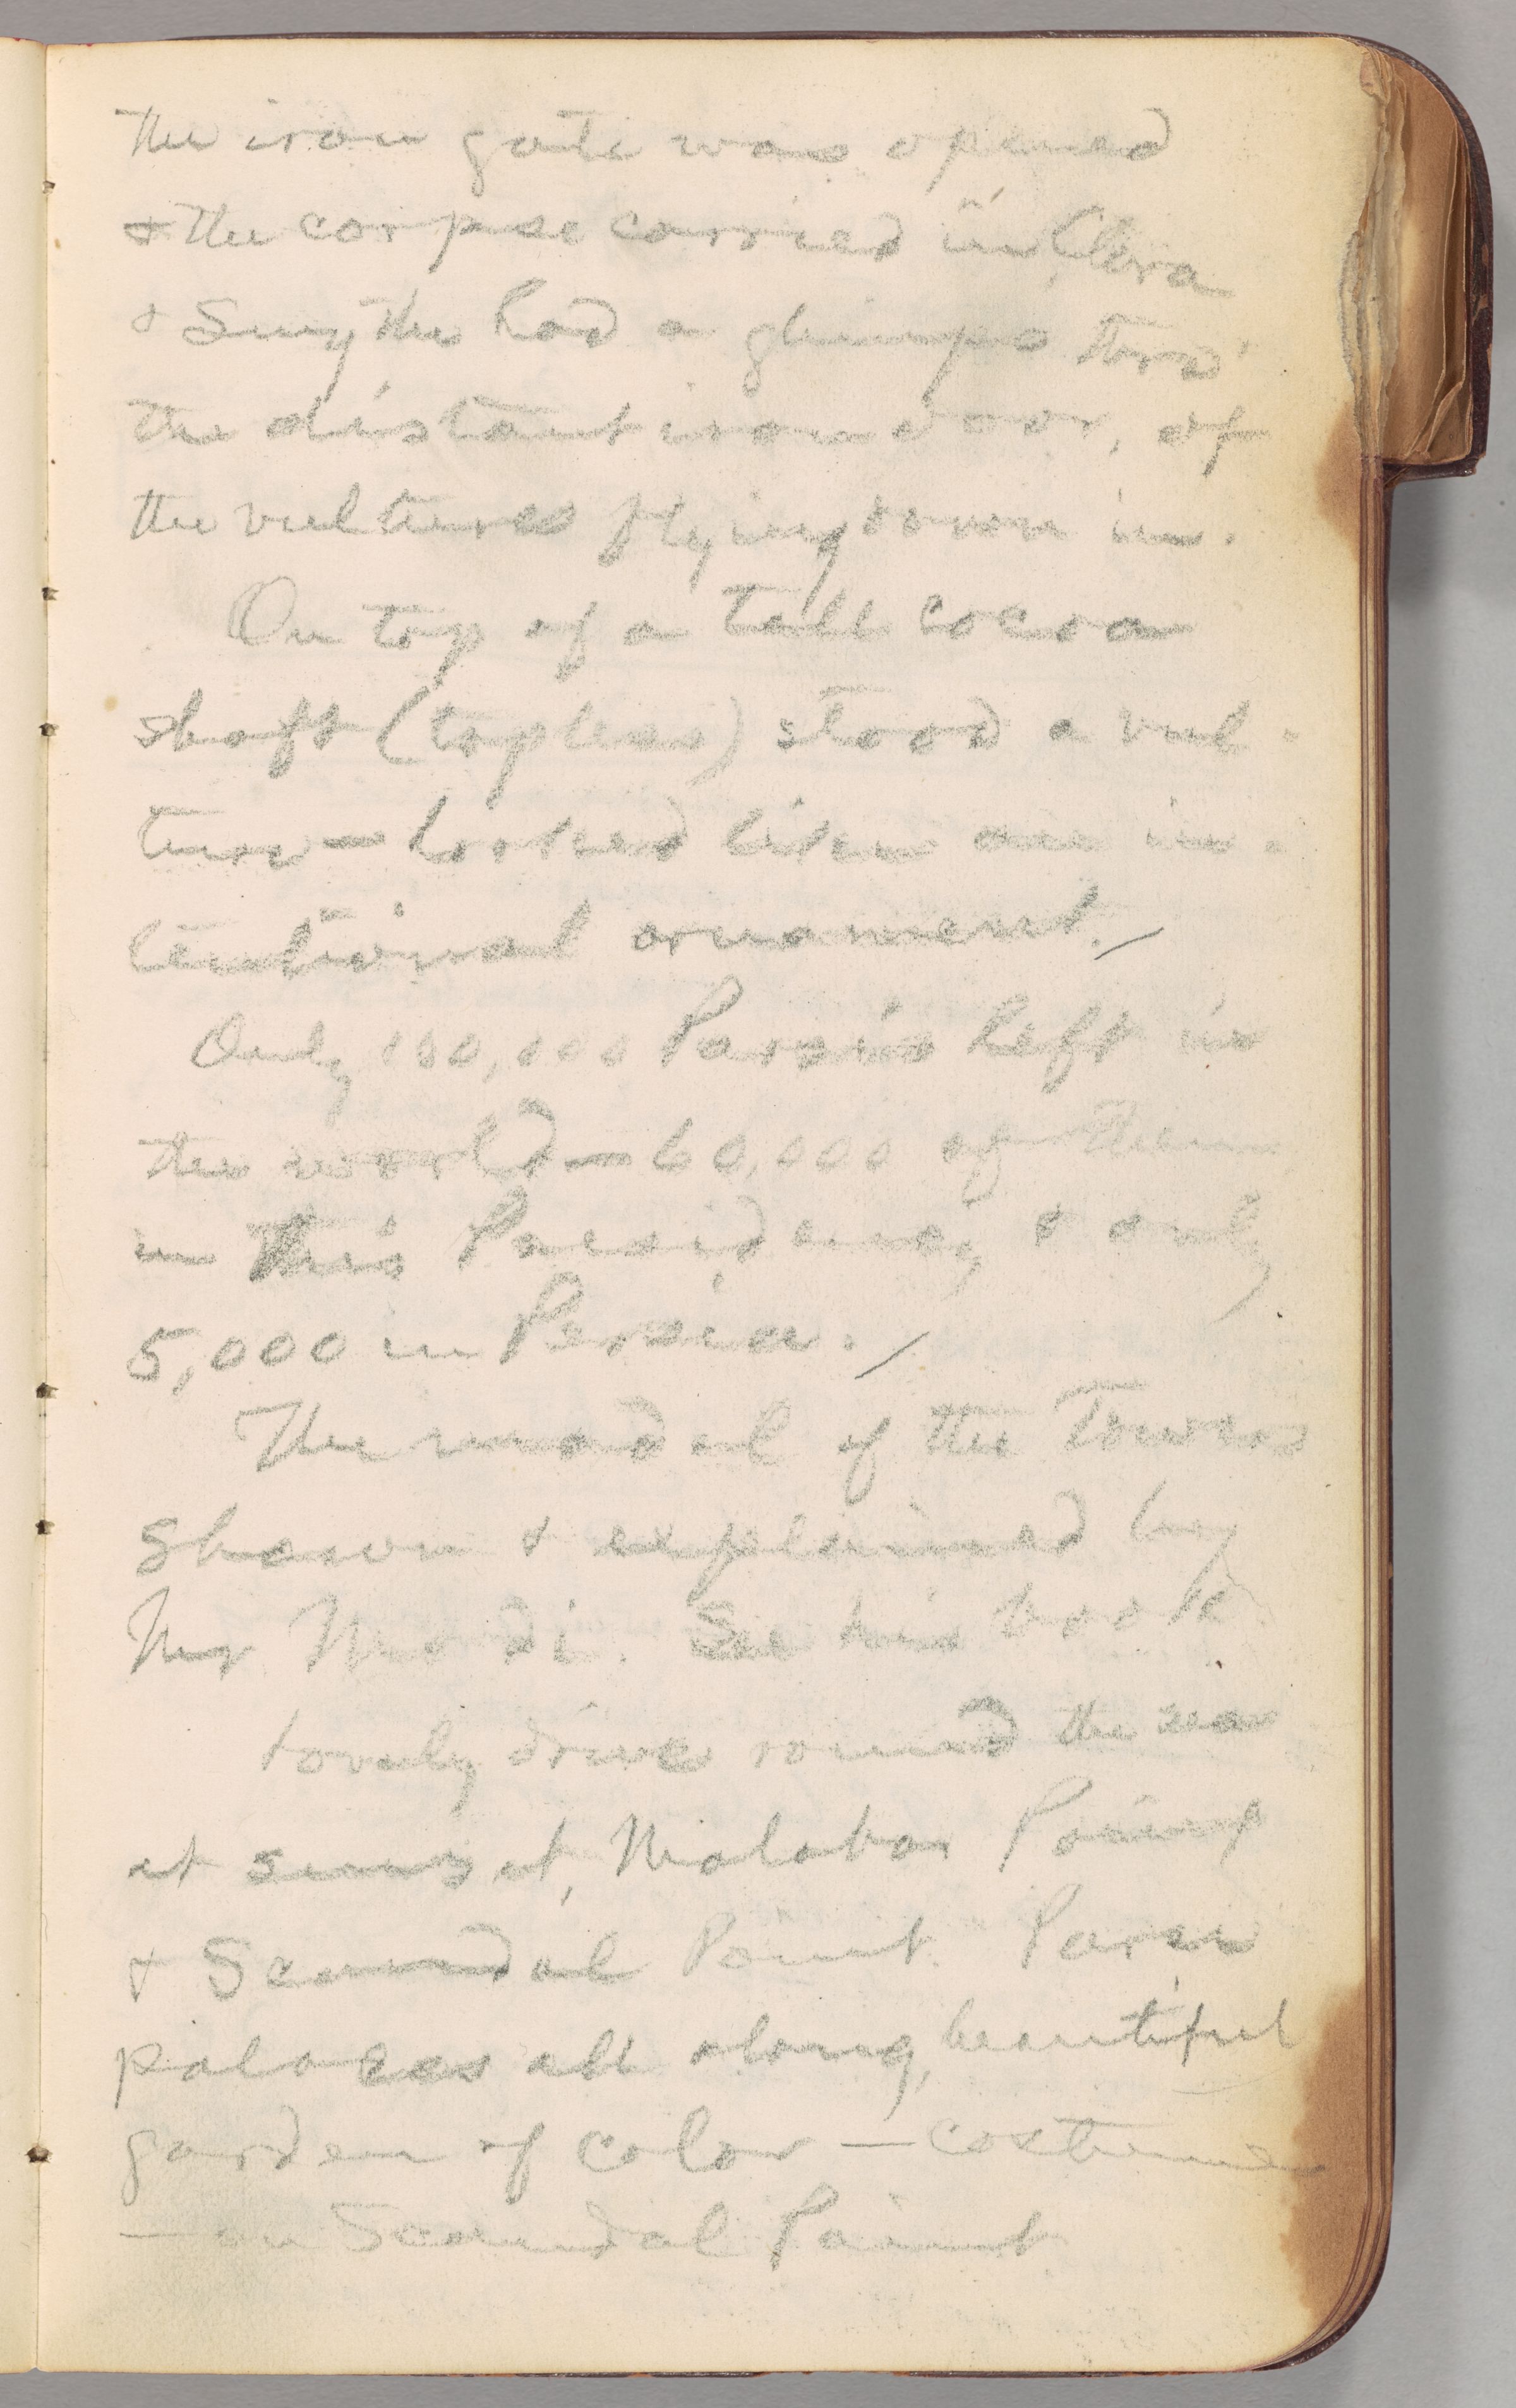 the iron gate was opened
& the corpse carried in, Clara
& Smythe had a glimpse thro'
the distant iron door, of
the vultures flying down in.
On top of a tall cocoa
shaft (topless) stood a vul-
ture — looked like an in-
tentional ornament./
Only 100,000 Parsis left in
the world — 60,000 of them
in this Presidency & only
5,000 in Persia./
The model of the Towers
shown & explained by
Mr Modi. See his book
Lovely drive round the sea
at sunset, Malabar Point
& Scandal Point. Parsee
palaces all along, beautiful
garden of color — costumes
— on Scandal Point